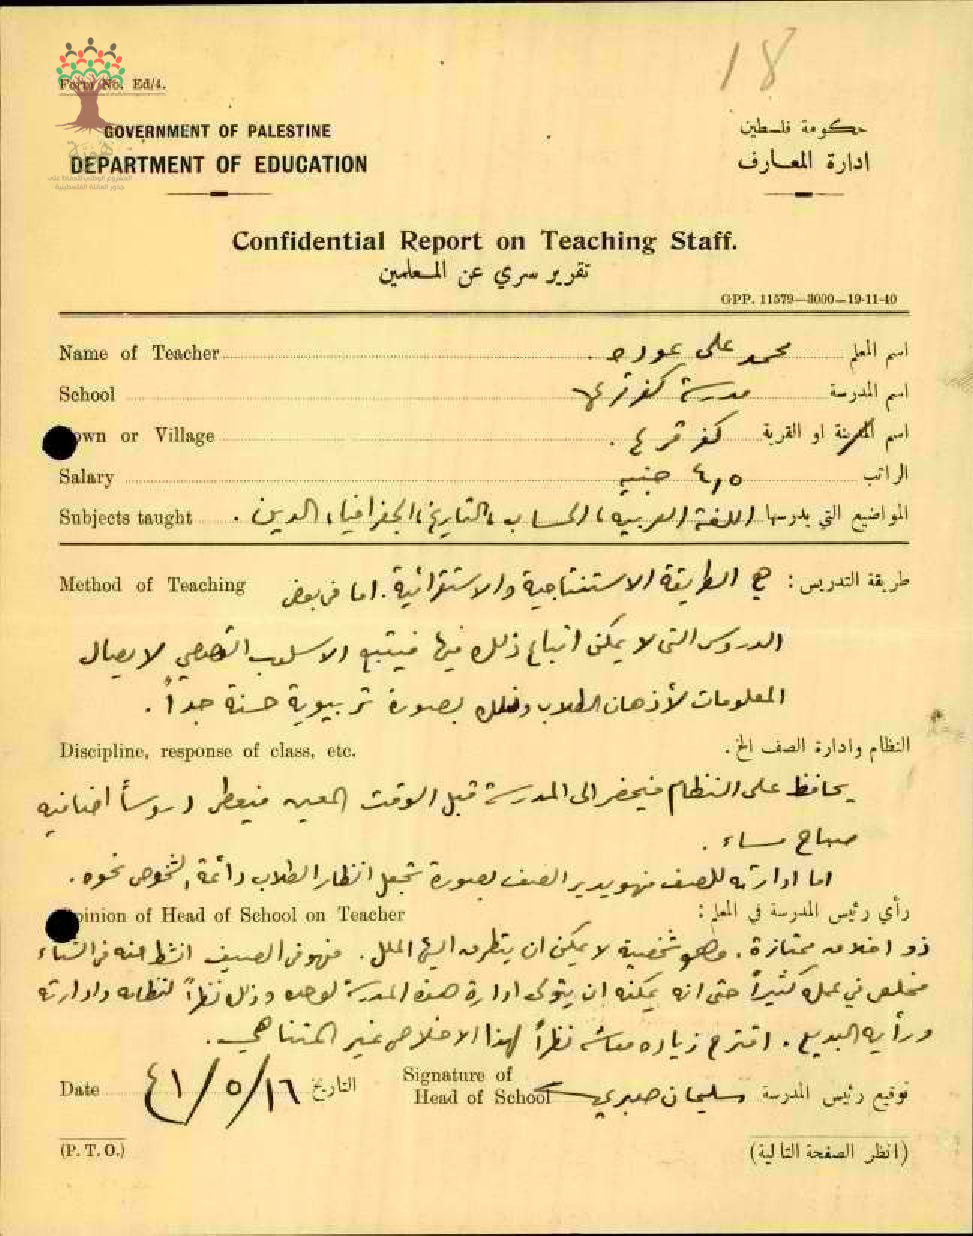 18
Form No. Ed/4.
GOVERNMENT OF PALESTINE
حكومة فلسطين
DEPARTMENT OF EDUCATION
ادارة المعارف
هوية
Confidential Report on Teaching Staff.
تقرير سري عن المعلمين
GPP. 11579—3000—19-11-40
Name of Teacher محمد علي عوده . اسم المعلم
School مدرسة كفر قرع اسم المدرسة
Town or Village كفر قرع . اسم المدينة او القرية
Salary ٤,٥ جنيه الراتب
Subjects taught اللغة العربية، الحساب، التاريخ، الجغرافيا، الدين . المواضيع التي يدرسها
Method of Teaching طريقة التدريس : هي الطريقة الاستنتاجية والاستقرائية . اما في بعض
الدروس التي لا يمكن اتباع ذلك فيها فيتبع الاسلوب القصصي لايصال
المعلومات لأذهان الطلاب وذلك بصورة تربيوية حسنة جداً .
Discipline, response of class, etc. النظام وادارة الصف الخ .
يحافظ على النظام فيحضر الى المدرسة قبل الوقت المعين فيعطي دروساً اضافيه
صباح مساء .
اما ادارته للصف فهو يدير الصف بصورة تجعل انظار الطلاب دائمة الشخوص نحوه .
Opinion of Head of School on Teacher رأي رئيس المدرسة في المعلم :
ذو اخلاق ممتازة . وهو شخصية لا يمكن ان يتطرق اليها الملل . فهو في الصيف انشط منه في الشتاء
مخلص في عمله كثيراً حتى انه يمكنه ان يتولى ادارة هذه المدرسة لوحده وذلك نظراً لنظامه وادارته
ورأيه البديع . اقترح زيادة معاشه نظراً لهذا الاخلاص غير المتناهي .
Date ١٦/٥/٤١ التاريخ
Signature of
Head of School سليمان صبري توقيع رئيس المدرسة
(P. T. O.)
(انظر الصفحة التالية)